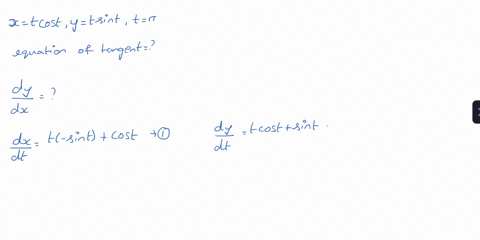 x=tcost, y=tsint, t=π
equation of tangent=?
dy/dx = ?
dx/dt = t(-sint) + cost → ①
dy/dt = tcost+sint